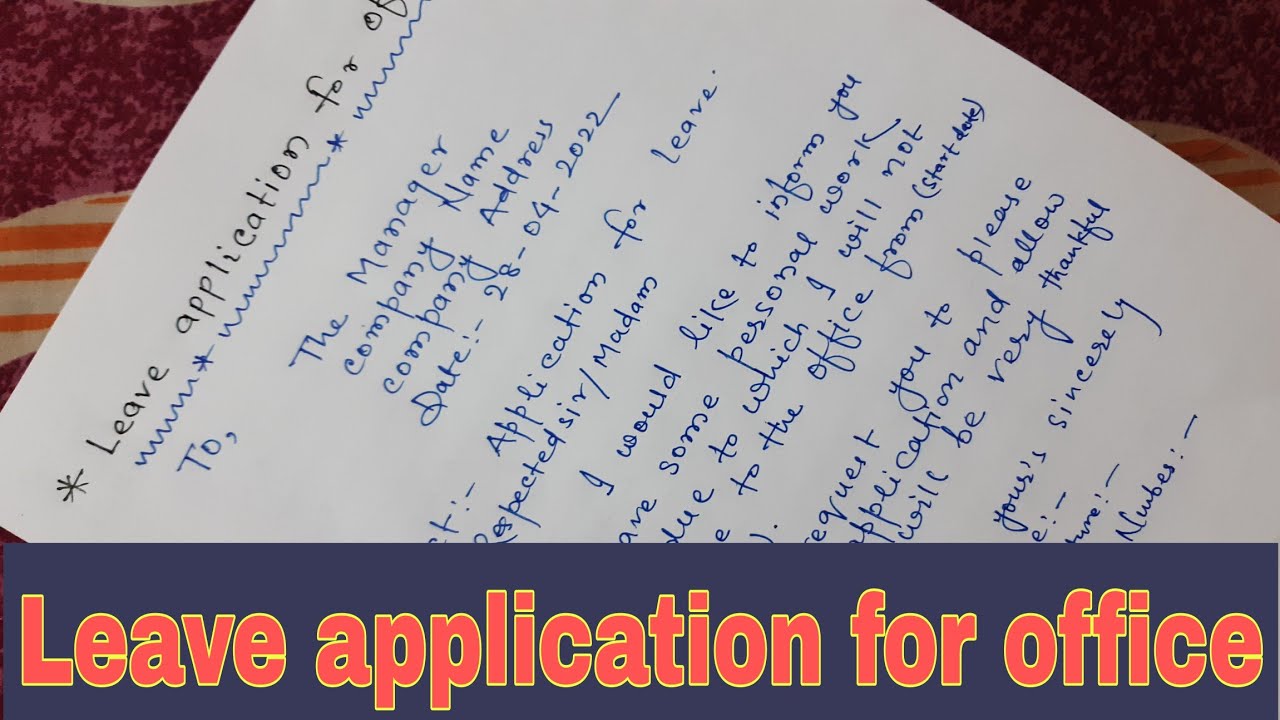 * Leave application for of
To,
The Manager
company Name
company Address
Date:- 28-04-2022
ct:- Application for leave.
Respected sir/Madam
I would like to inform you
ave some personal work
due to which I will not
e to the office from (start date)
).
request you to please
application and allow
will be very thankful
your's sincerely
e:-
ture:-
Number:-
Leave application for office